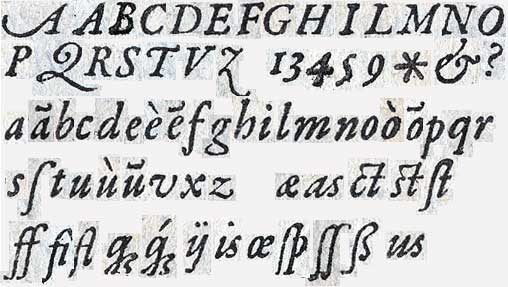 A A B C D E F G H I L M N O
P Q R S T V Z 1 3 4 5 9 * & ?
a ã b c d e è ẽ f g h i l m n o ò õ p q r
s ſ t u ù ũ v x z æ as ct st ſt
ff fi fl ÿ is œ ſp ſſ ß us